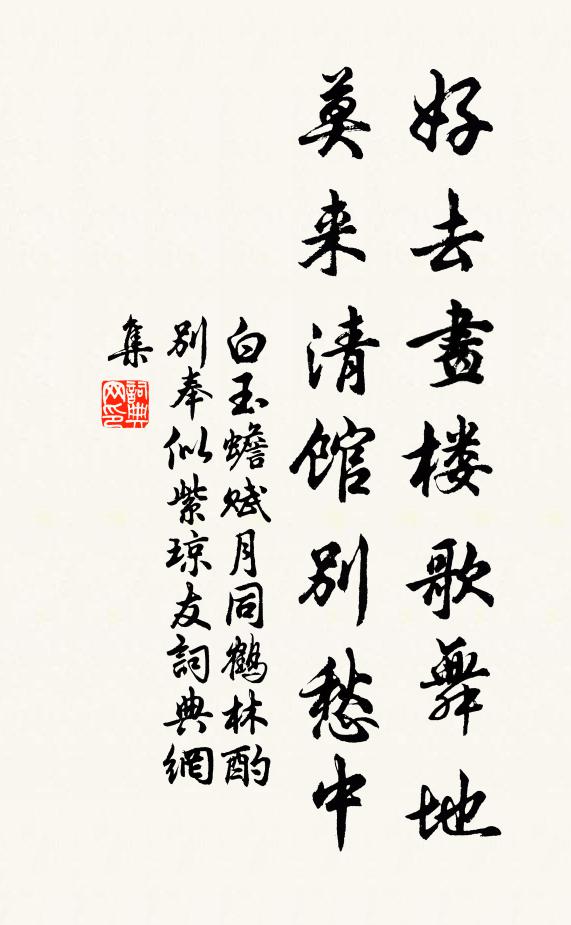 好去畫楼歌舞地
莫来清館别愁中
白玉蟾赋月同鶴林酌
别奉似紫琼友詞典網
集
詞典网印